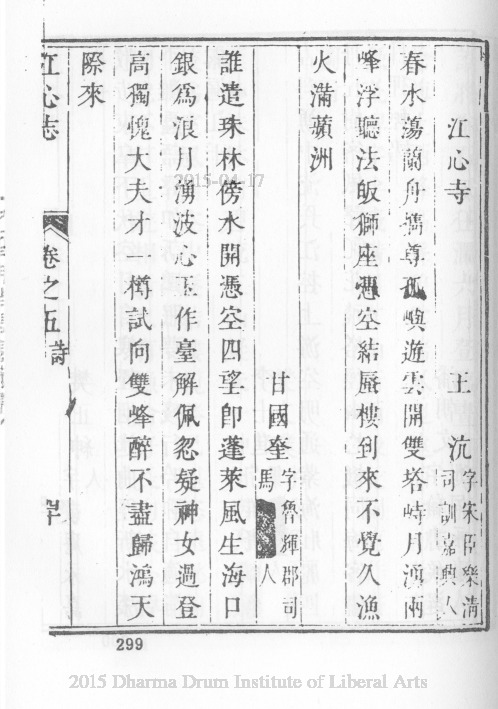 江心寺
王沆 字宋臣樂清司訓嘉興人
春水蕩蘭舟攜尊孤嶼遊雲開雙塔峙月湧兩
峰浮聽法皈獅座憑空結蜃樓到來不覺久漁
火滿蘋洲
甘國奎 字魯輝郡司馬 人
誰遣珠林傍水開憑空四望卽蓬萊風生海口
銀爲浪月湧波心玉作臺解佩忽疑神女過登
高獨愧大夫才一樽試向雙峰醉不盡歸鴻天
際來
江心志
卷之五 詩
299
2015-04-17
2015 Dharma Drum Institute of Liberal Arts